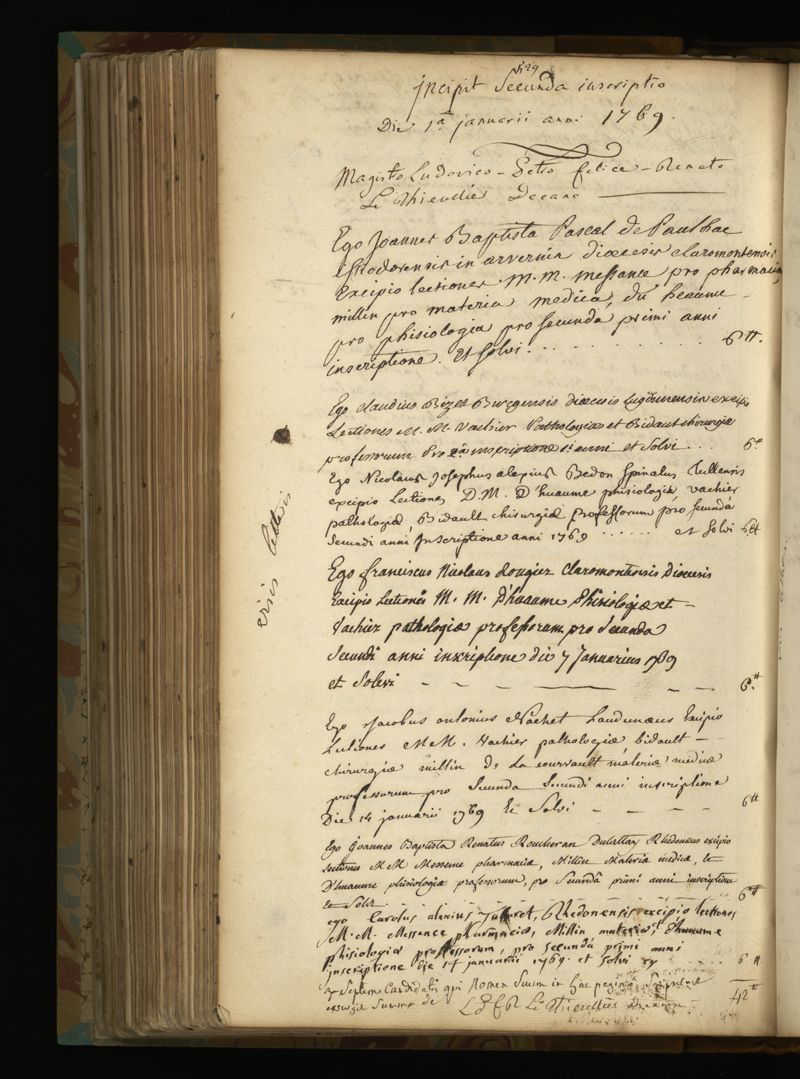 Incipit Secunda inscriptio
Die 1ª januarii anni 1769.
Magistro Ludovico - Petro felice - Renato
Le Thieullier Decano
Ego Joannes Baptista Pascal de Paulhac
issiodorensis in arvernia dioecesis claromontensis
Excipio lectiones M. M. messance pro pharmacia,
millin pro materia medica, du heaume
pro phisiologia pro secunda primi anni
inscriptione. Et solvi. . . . . . . . . . . 6 ₶.
Ego claudius Bizet Burgensis dioecesis Lugdunensis excipio
Lectiones M. M. Vachier Pathologiæ et Bidault chirurgiæ
professorum Pro 2ª inscriptione 1i anni et Solvi . . . . 6 ₶
Ego Nicolaus Josephus alexius Bedon Spinalus Tullensis
excipio Lectiones D. M. D'huaume phisiologiæ, vachier
pathologiæ, Bidault chirurgiæ professorum pro secundâ
Secundi anni Inscriptione anni 1769 . . . . . . et solvi 6 ₶
eriis litteris
Ego franciscus Nicolaus Rougier Claromontensis Dioecesis
Excipio Lectiones M. M. D'huaume Phisiologiæ et
Vachier pathologiæ professorum pro Secunda
Secundi anni inscriptione die 7 Januarius 1769
et Solvi - - - - - 6. ₶
Ego Jacobus antonius Nachet Laudunæus Excipio
Lectiones MM. Vachier pathologiæ bidault
chirurgiæ millin De La courvault materiæ medicæ
professorum pro Secunda Secundi anni inscriptione
Die 14 januarii 1769 Et Solvi - - - - 6 ₶
Ego Joannes Baptista Renatus Roucheran Dulattay Rhedoneus excipio
lectiones MM Messence pharmaciæ, Millin Materiæ medicæ, et
D'huaume phisiologiæ professorum, pro Secundâ primi anni inscriptione
et Solvi . - . - . - . 6 ₶
ego Carolus alexius Rhedonensis excipio lectiones
M. M. Messance pharmaciæ, Millin materiæ, D'huaume
phisiologiæ professorum, pro secundâ primi anni
inscriptione Die 14 januarii 1769. et solvi . . . . 6 ₶
a Septem Candidatis qui Nomen Suum in hac pagina
Summa de 42 ₶
L P F R Le Thieullier Decanus